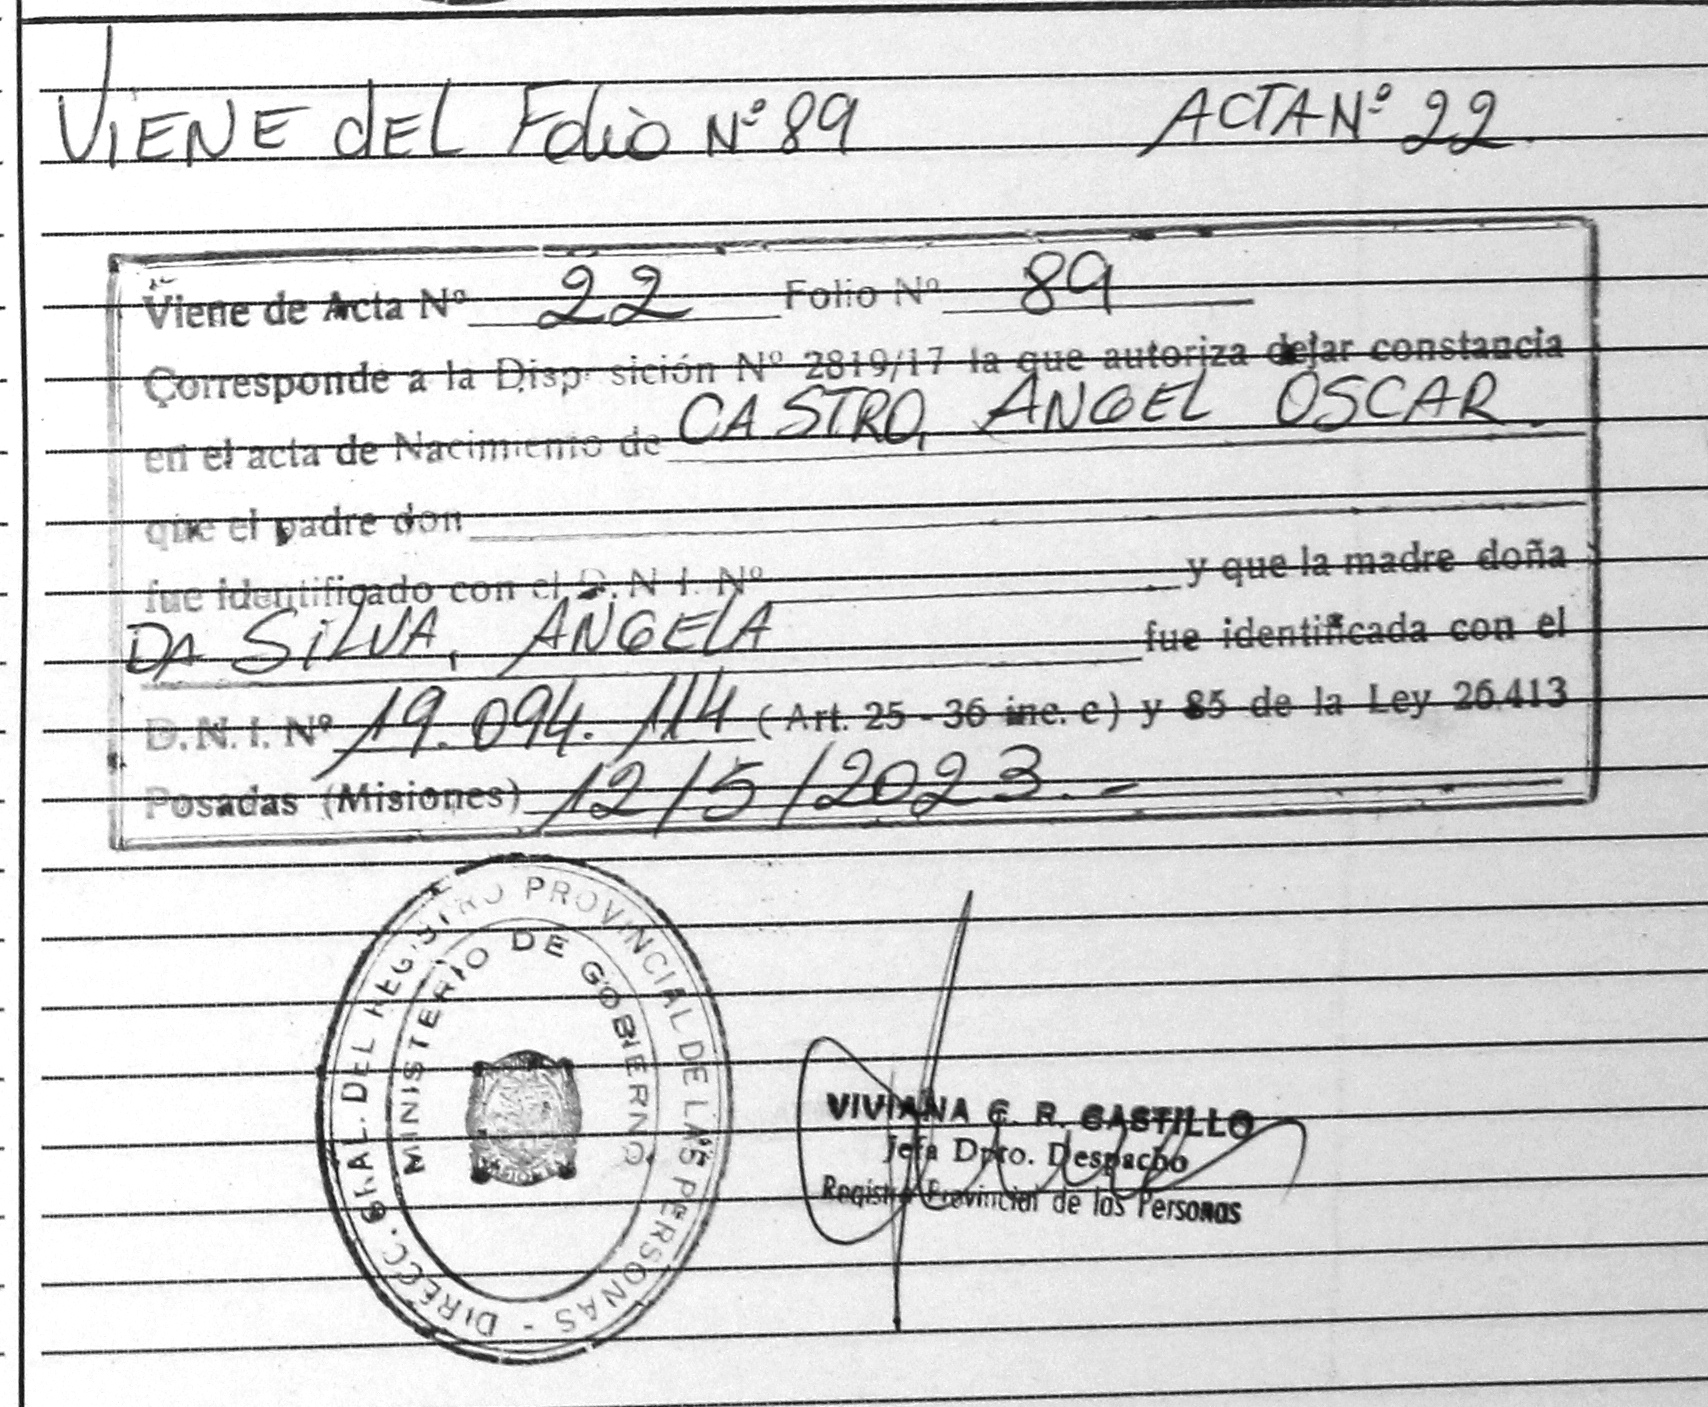 VIENE dEL Folio Nº 89 ACTA Nº 22
Viene de Acta Nº 22 Folio Nº 89
Corresponde a la Disposición Nº 2819/17 la que autoriza dejar constancia
en el acta de Nacimiento de CASTRO, ANGEL OSCAR
que el padre don
fue identificado con el D.N.I. Nº y que la madre doña
DA SILVA, ANGELA fue identificada con el
D.N.I. Nº 19.094.114 (Art. 25 - 36 inc. c) y 85 de la Ley 26.413
Posadas (Misiones) 12/5/2023.-
DIRECC. GRAL. DEL REGISTRO PROVINCIAL DE LAS PERSONAS -
MINISTERIO DE GOBIERNO
VIVIANA G. R. CASTILLO
Jefa Dpto. Despacho
Registro Provincial de las Personas